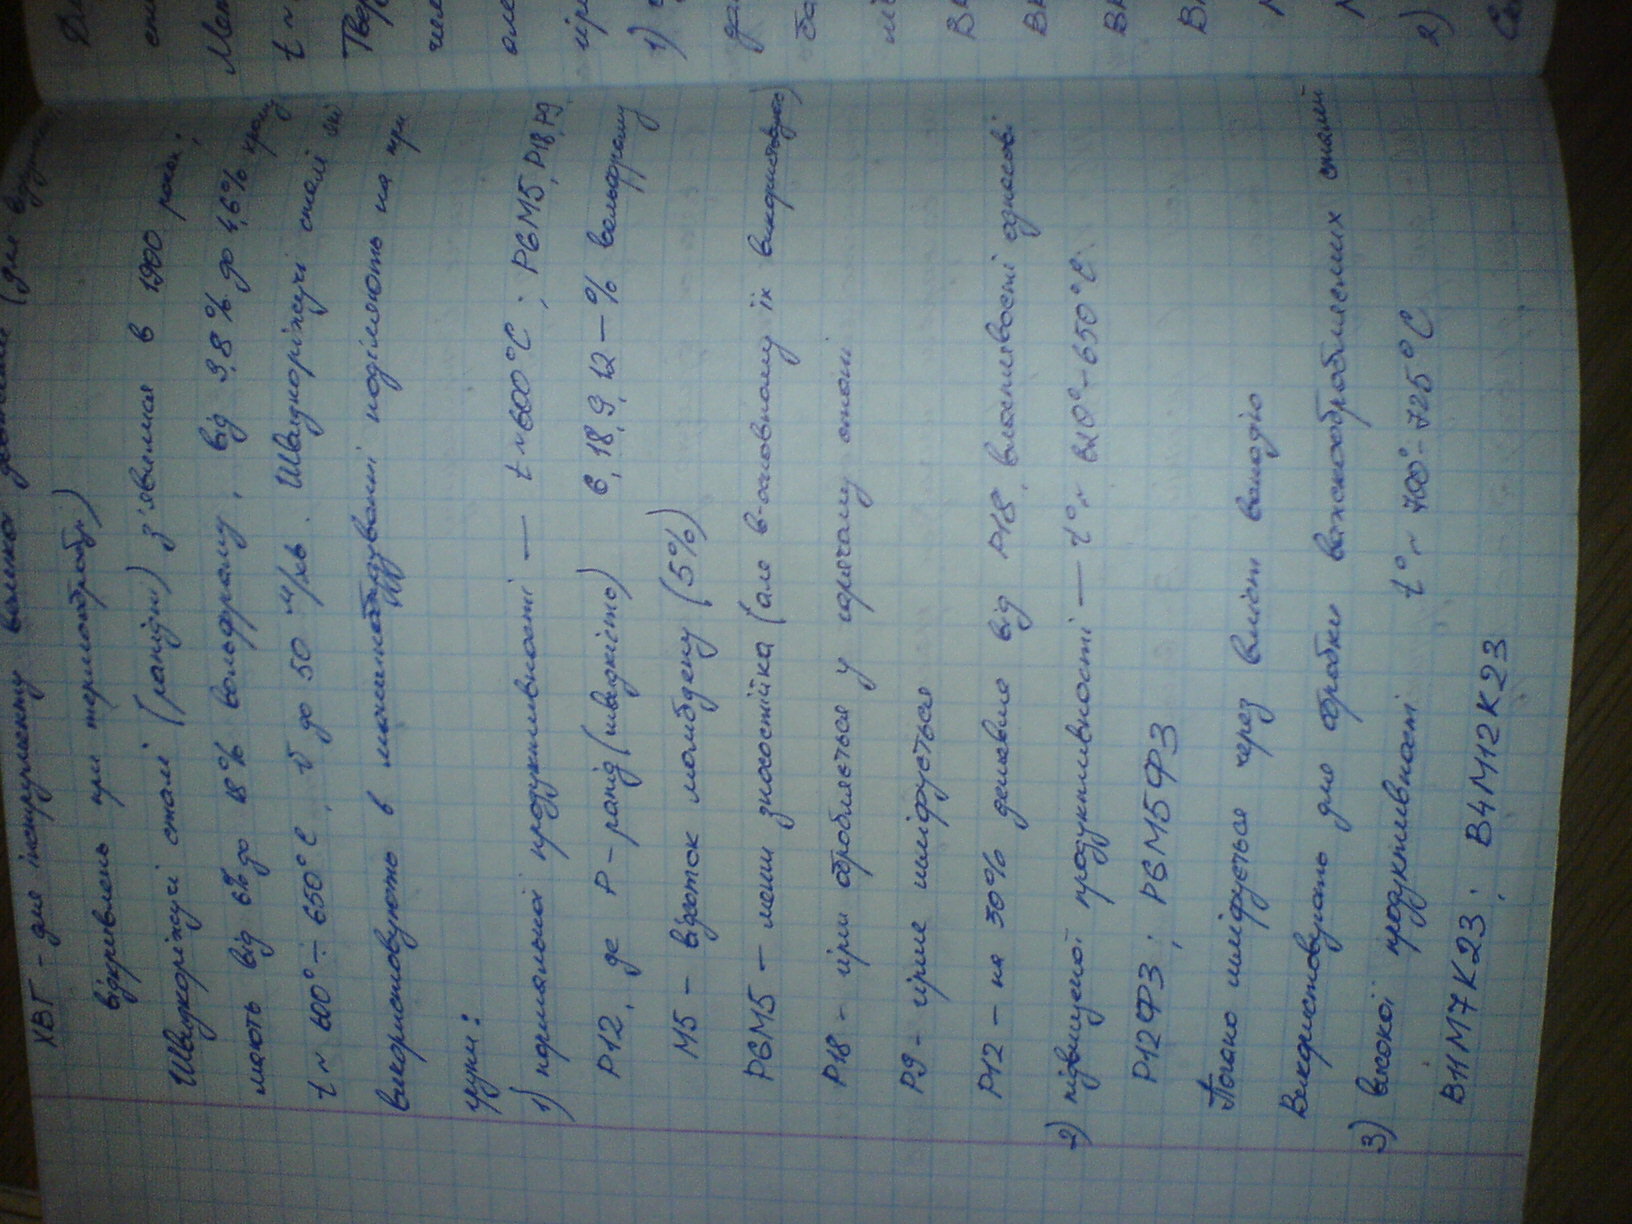 ХВГ - для інструменту великої довжини (для
відхилень при термообробці)
Швидкоріжучі сталі (рапідні) з'явилися в 1900 році,
мають від 6% до 18% вольфраму, від 3,8% до 4,6% хрому
t ~ 600° ÷ 650°C, V до 50 м/хв. Швидкоріжучі сталі які
використовують в машинобудуванні поділяють на три
групи:
1) нормальної продуктивності — t ~ 600°C; Р6М5, Р18, Р9,
Р12, де Р - рапід (швидкісно) 6, 18, 9, 12 — % вольфраму
М5 - відсоток молібдену (5%)
Р6М5 — менш зносостійка (але в-основному їх використовують)
Р18 - гірш обробляється у гарячому стані
Р9 - гірше шліфується
Р12 - на 30% дешевше від Р18, властивості однакові
2) підвищеної продуктивності — t° ~ 610° - 650°C
Р12Ф3; Р6М5Ф3
Погано шліфується через вміст ванадію
Використовують для обробки важкооброблюємих сталей
3) високої продуктивності t° ~ 700° - 725°C
В11М7К23; В4М12К23